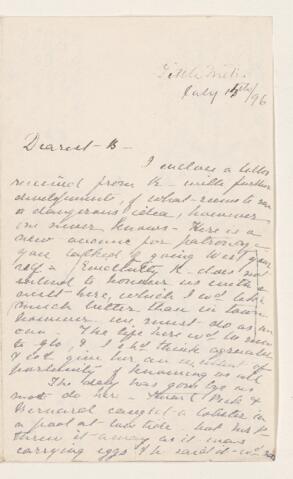 Little Metis
July 15th/96
Dearest B -
I enclose a letter
received from K - with further
developments, of what seems to me
a dangerous idea, however
one never knows - Here is a
new avenue for patronage -
you talked of going West your
self - Evidently K - does not
intend to honour us with a
visit here, which I wd like
much better than in town
however we must do as we
can. The life here wd be more
to
& I shd think agreeable
& wd give her an
opportunity of knowing us all
The day was gone by as
most do here -
Bernard caught a lobster in
a pool at low tide. but Mr K -
threw it away as it was
carrying eggs & he said it wd